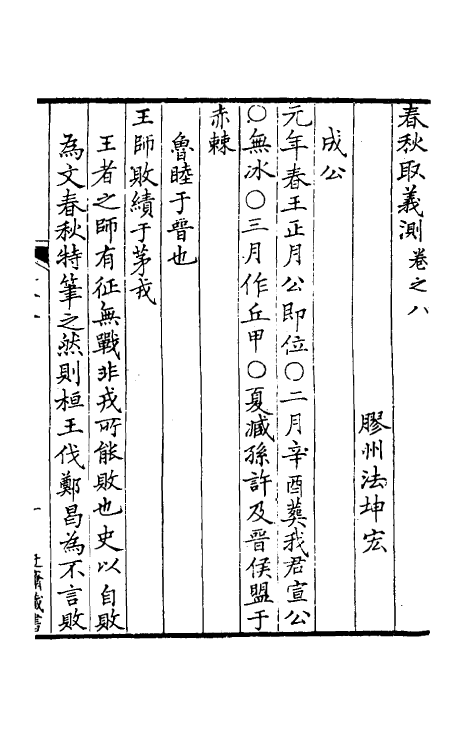 春秋取義測卷之八
膠州法坤宏
成公
元年春王正月公即位〇二月辛酉葬我君宣公
〇無冰〇三月作丘甲〇夏臧孫許及晉侯盟于
赤棘
魯睦于晉也
王師敗績于茅戎
王者之師有征無戰非戎所能敗也史以自敗
為文春秋特筆之然則桓王伐鄭曷為不言敗
一